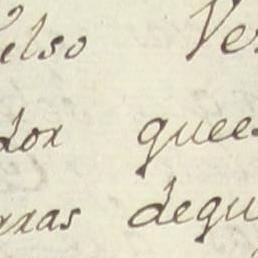 elso Ve
dor quee
rras degu